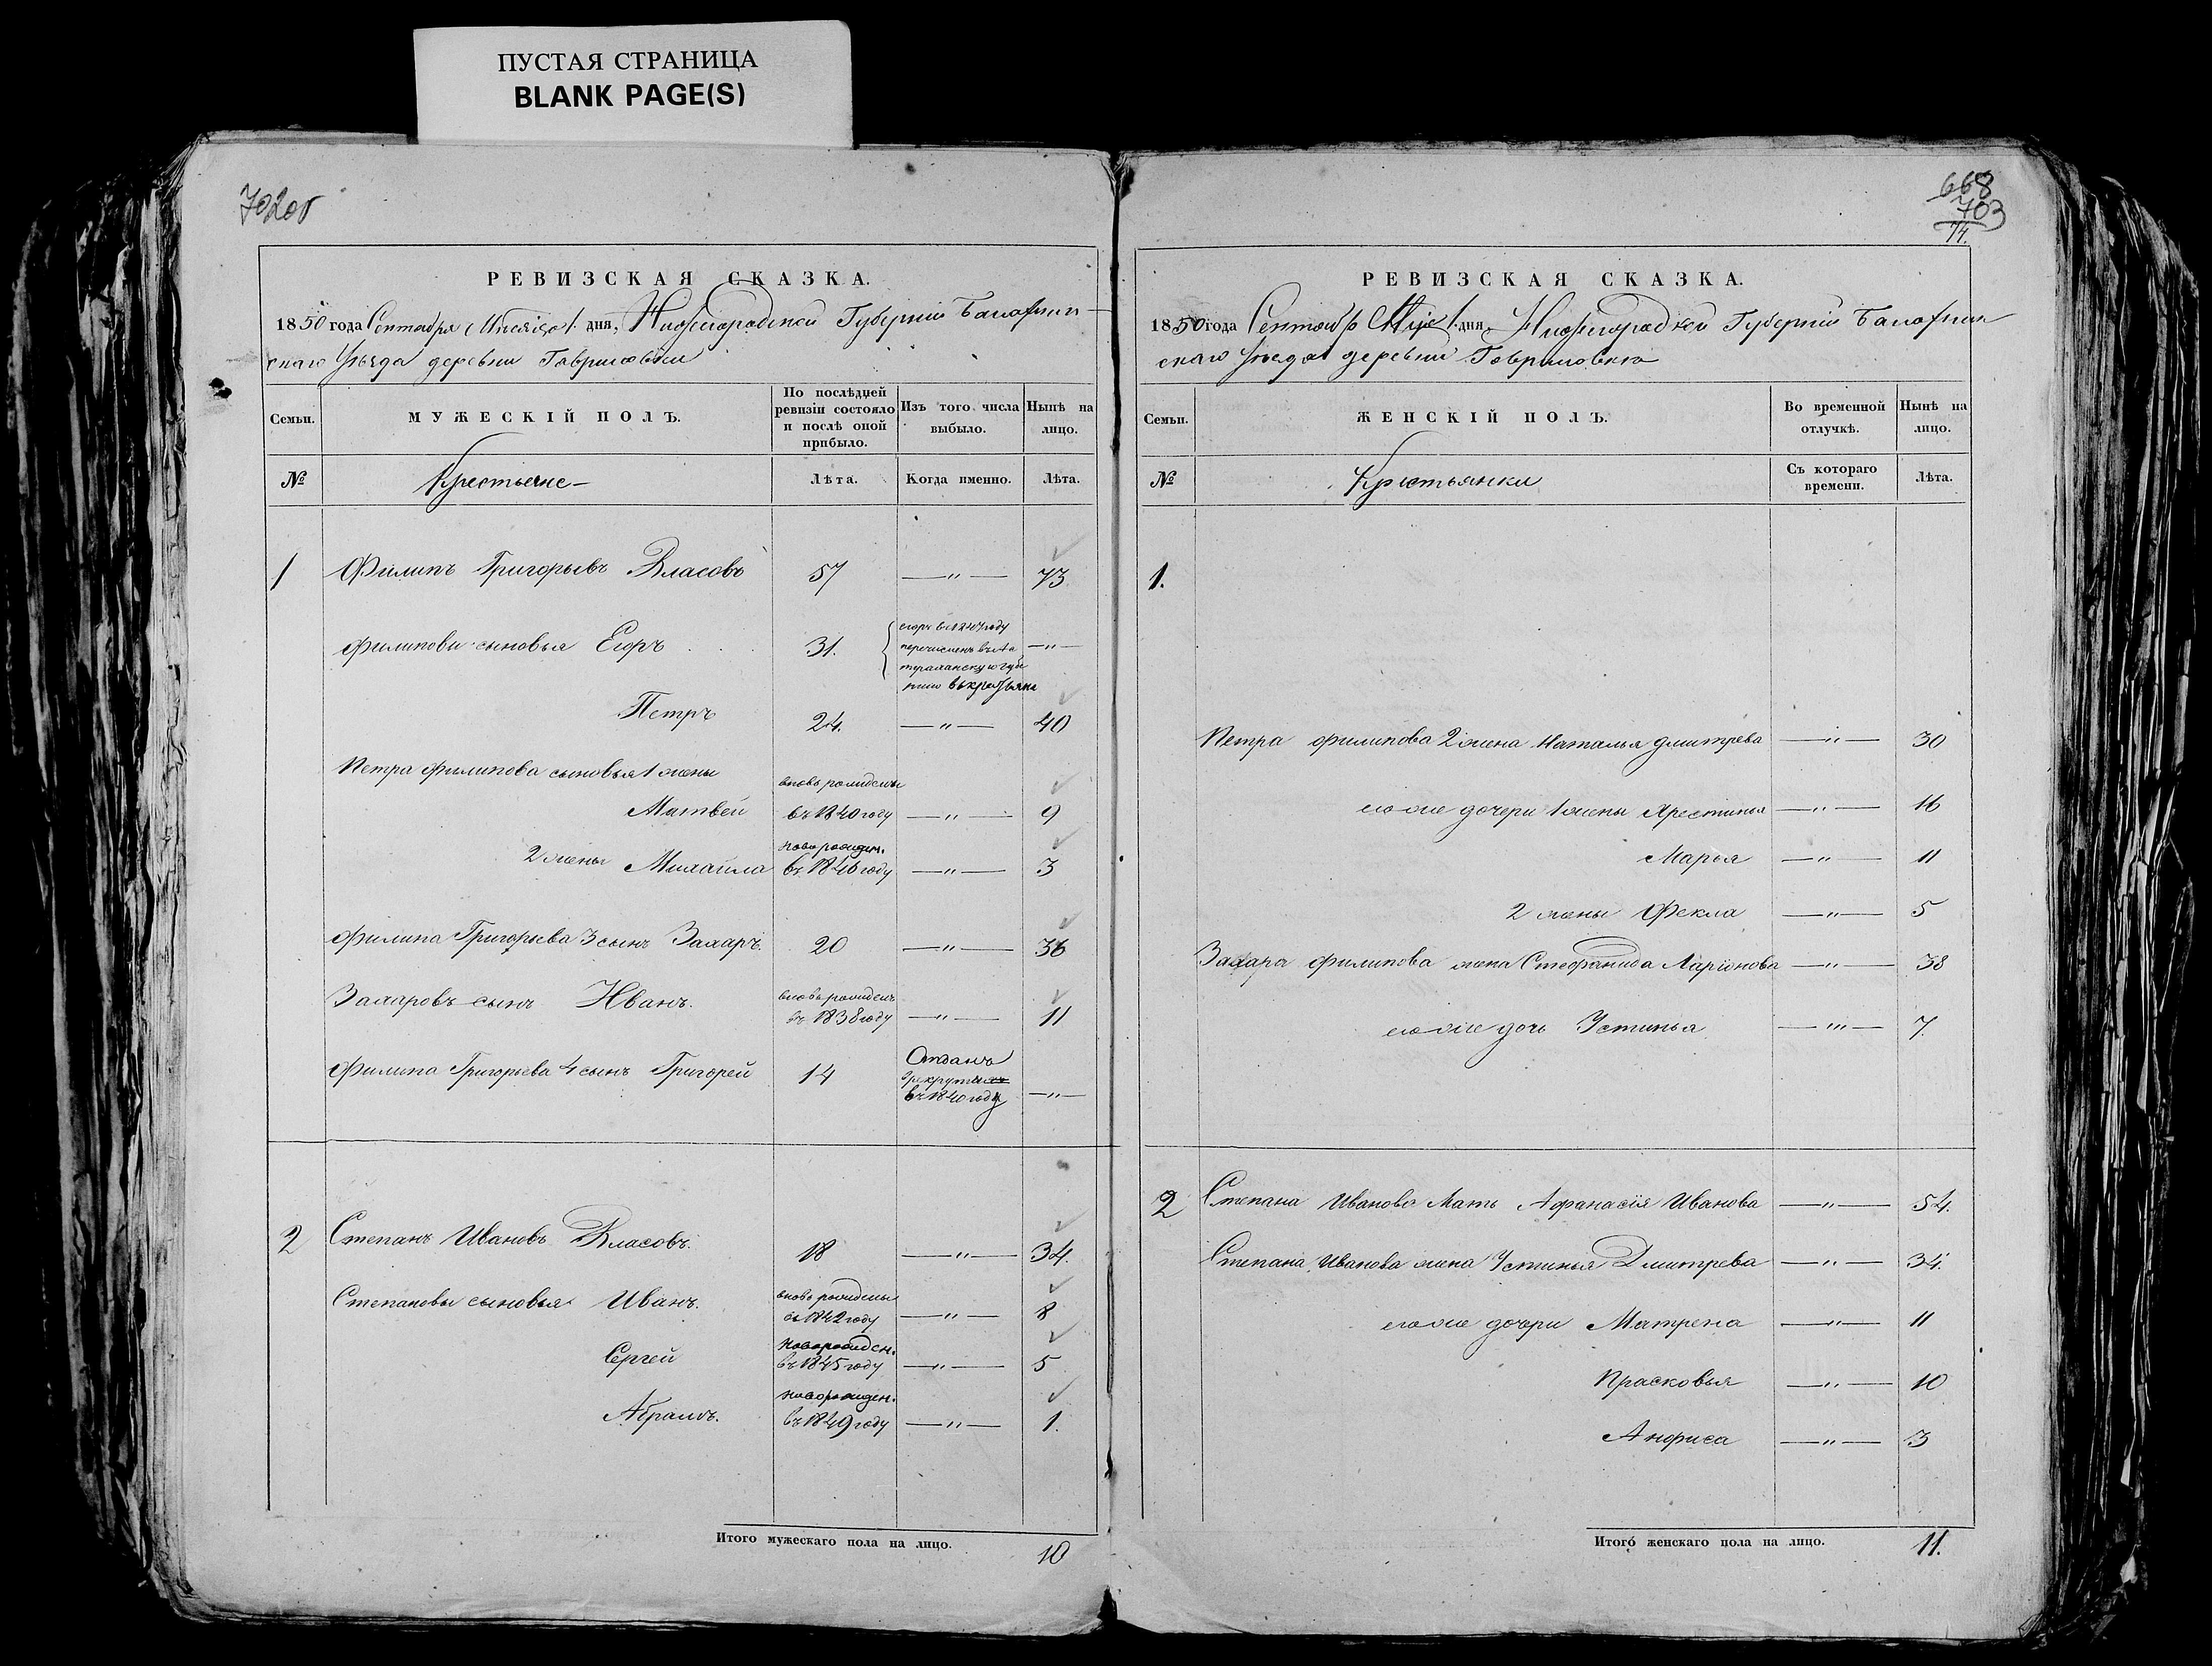 ПУСТАЯ СТРАНИЦА
BLANK PAGE(S)
702об
РЕВИЗСКАЯ СКАЗКА.
1850 года Сентября Месяца 1. дня, Нижегородской Губерніи Балахнин-
скаго Уѣзда деревни Гавриловки
Семьи.
МУЖЕСКІЙ ПОЛЪ.
По послѣдней ревизіи состояло и послѣ оной прибыло.
Изъ того числа выбыло.
Нынѣ на лицо.
№
Крестьяне
Лѣта.
Когда именно.
Лѣта.
1 Филипъ Григорьевъ Власовъ 57 —"— 73
Филиповы сыновья Егоръ 31. егоръ в 1847 году —"—
перечисленъ въ Ас
тараханскую губе
рнию въ крестьяне
Петръ 24. —"— 40
Петра Филипова сыновья 1 жены
вновь рожденъ
Матвей въ 1840 году —"— 9
новорожден.
2 жены Михайла въ 1846 году —"— 3
Филипа Григорьева 3 сынъ Захаръ. 20 —"— 36
вновь рожденъ
Захаровъ сынъ Иванъ. въ 1838 году —"— 11
Филипа Григорьева 4 сынъ Григорей 14 Отданъ
в рекруты
въ 1840 году —"—
2 Степанъ Ивановъ Власовъ. 18 —"— 34.
вновь рождены
Степановы сыновья Иванъ. въ 1842 году —"— 8
новорожден.
Сергей въ 1845 году —"— 5
новорожден.
Абрамъ. въ 1849 году —"— 1.
Итого мужескаго пола на лицо. 10
668
703
74.
РЕВИЗСКАЯ СКАЗКА.
1850 года Сентября Мца 1. дня, Нижегородской Губерніи Балахнин
скаго Уѣзда деревни Гавриловки
Семьи.
ЖЕНСКІЙ ПОЛЪ.
Во временной отлучкѣ.
Нынѣ на лицо.
№
Крестьянки
Съ котораго времени.
Лѣта.
1.
Петра Филипова 2 жена Наталья Дмитрева —"— 30
его же дочери 1 жены Арестинья —"— 16
Марья —"— 11
2 жены Фекла —"— 5
Захара Филипова жена Стефанида Ларіонова —"— 38
его же дочь Устинья —"— 7.
2 Степана Иванова Мать Афанасія Иванова —"— 54.
Степана Иванова жена Устинья Дмитрева —"— 34.
его же дочери Матрена —"— 11
Прасковья —"— 10
Анфиса —"— 3
Итого женскаго пола на лицо. 11.